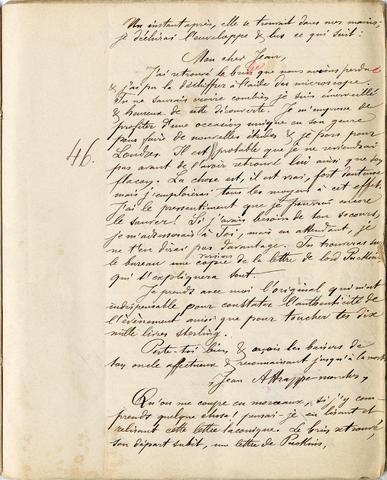 Un instant après, elle se trouvait dans mes mains,
je déchirai l'enveloppe & lus ce qui suit:
Mon cher Jean,
J'ai retrouvé le brin que nous avions perdu
& j'ai pu le déchiffrer à l'aide du microscope.
Tu ne saurais croire combien je suis émerveillé
& heureux de cette découverte. Je m'empresse de
profiter d'une occasion unique en son genre
pour faire de nouvelles études & je pars pour
Londres. Il est probable que je ne reviendrai
pas avant de l'avoir retrouvé lui ainsi que son
flacon. La chose est, il est vrai, fort
mais j'emploierai tous les moyens à cet effet.
J'ai le pressentiment que je pourrai encore
le sauver! Si j'avais besoin de ton secours,
je m'adresserais à Toi, mais en attendant, je
ne t'en dirai pas davantage. Tu trouveras sur
le bureau une copie de la lettre de lord
qui t'expliquera tout.
46.
Je prends avec moi l'original qui m'est
indispensable pour constater l'authenticité de
l'évènement ainsi que pour toucher les dix
mille livres sterling.
Porte-toi bien & reçois les baisers de
ton oncle affectueux & reconnaissant jusqu'à la mort
Jean
Qu'on me coupe en morceaux, si j'y com-
prends quelque chose! pensai-je en lisant et
relisant cette lettre laconique. Le brin retrouvé,
son départ subit, une lettre de